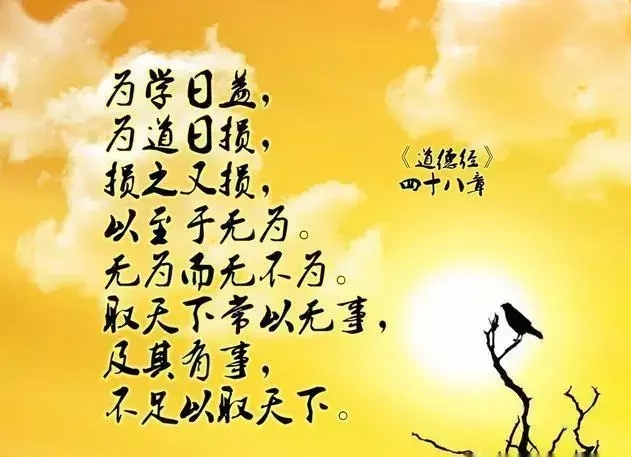 为学日益，
为道日损，
损之又损，
以至于无为。
无为而无不为。
取天下常以无事，
及其有事，
不足以取天下。
《道德经》
四十八章